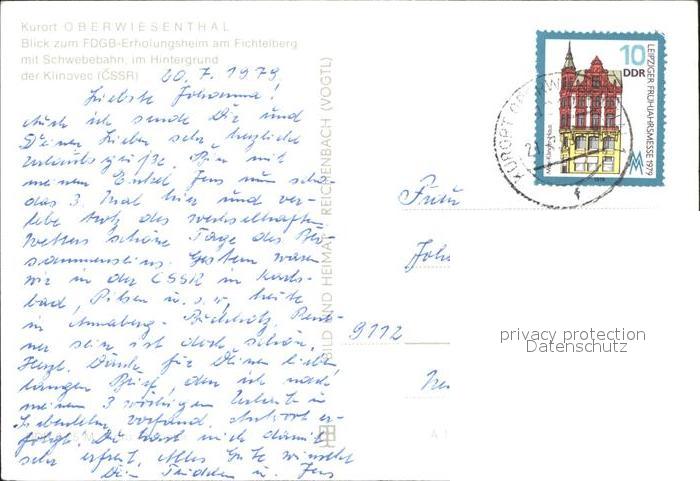 Kurort OBERWIESENTHAL
Blick zum FDGB-Erholungsheim am Fichtelberg
mit Schwebebahn, im Hintergrund
der Klinovec (ČSSR)
20.7.1979
Liebste Johanna!
Auch ich sende Dir und
Deinen Lieben sehr herzliche
Urlaubsgrüße. Bin mit
meinem Enkel Jens nun schon
das 3. Mal hier und ver-
lebe trotz des wechselhaften
Wetters schöne Tage des Bei-
sammenseins. Gestern waren
wir in der CSSR in Karls-
bad, Pilsen u.s.w, heute
in Annaberg-Buchholz. Rent-
ner sein ist doch schön.
Herzl. Dank für Deinen lieben,
langen Brief, den ich nach
meinem 3 wöchigen Urlaub in
vorfand. Antwort er-
folgt. Du hast mich damit
sehr erfreut. Alles Gute wünscht
Dir u. Jens
BILD UND HEIMAT REICHENBACH (VOGTL)
10
DDR
LEIPZIGER FRÜHJAHRSMESSE 1979
KURORT OBERW
Frau
Joh
9112
privacy protection
Datenschutz